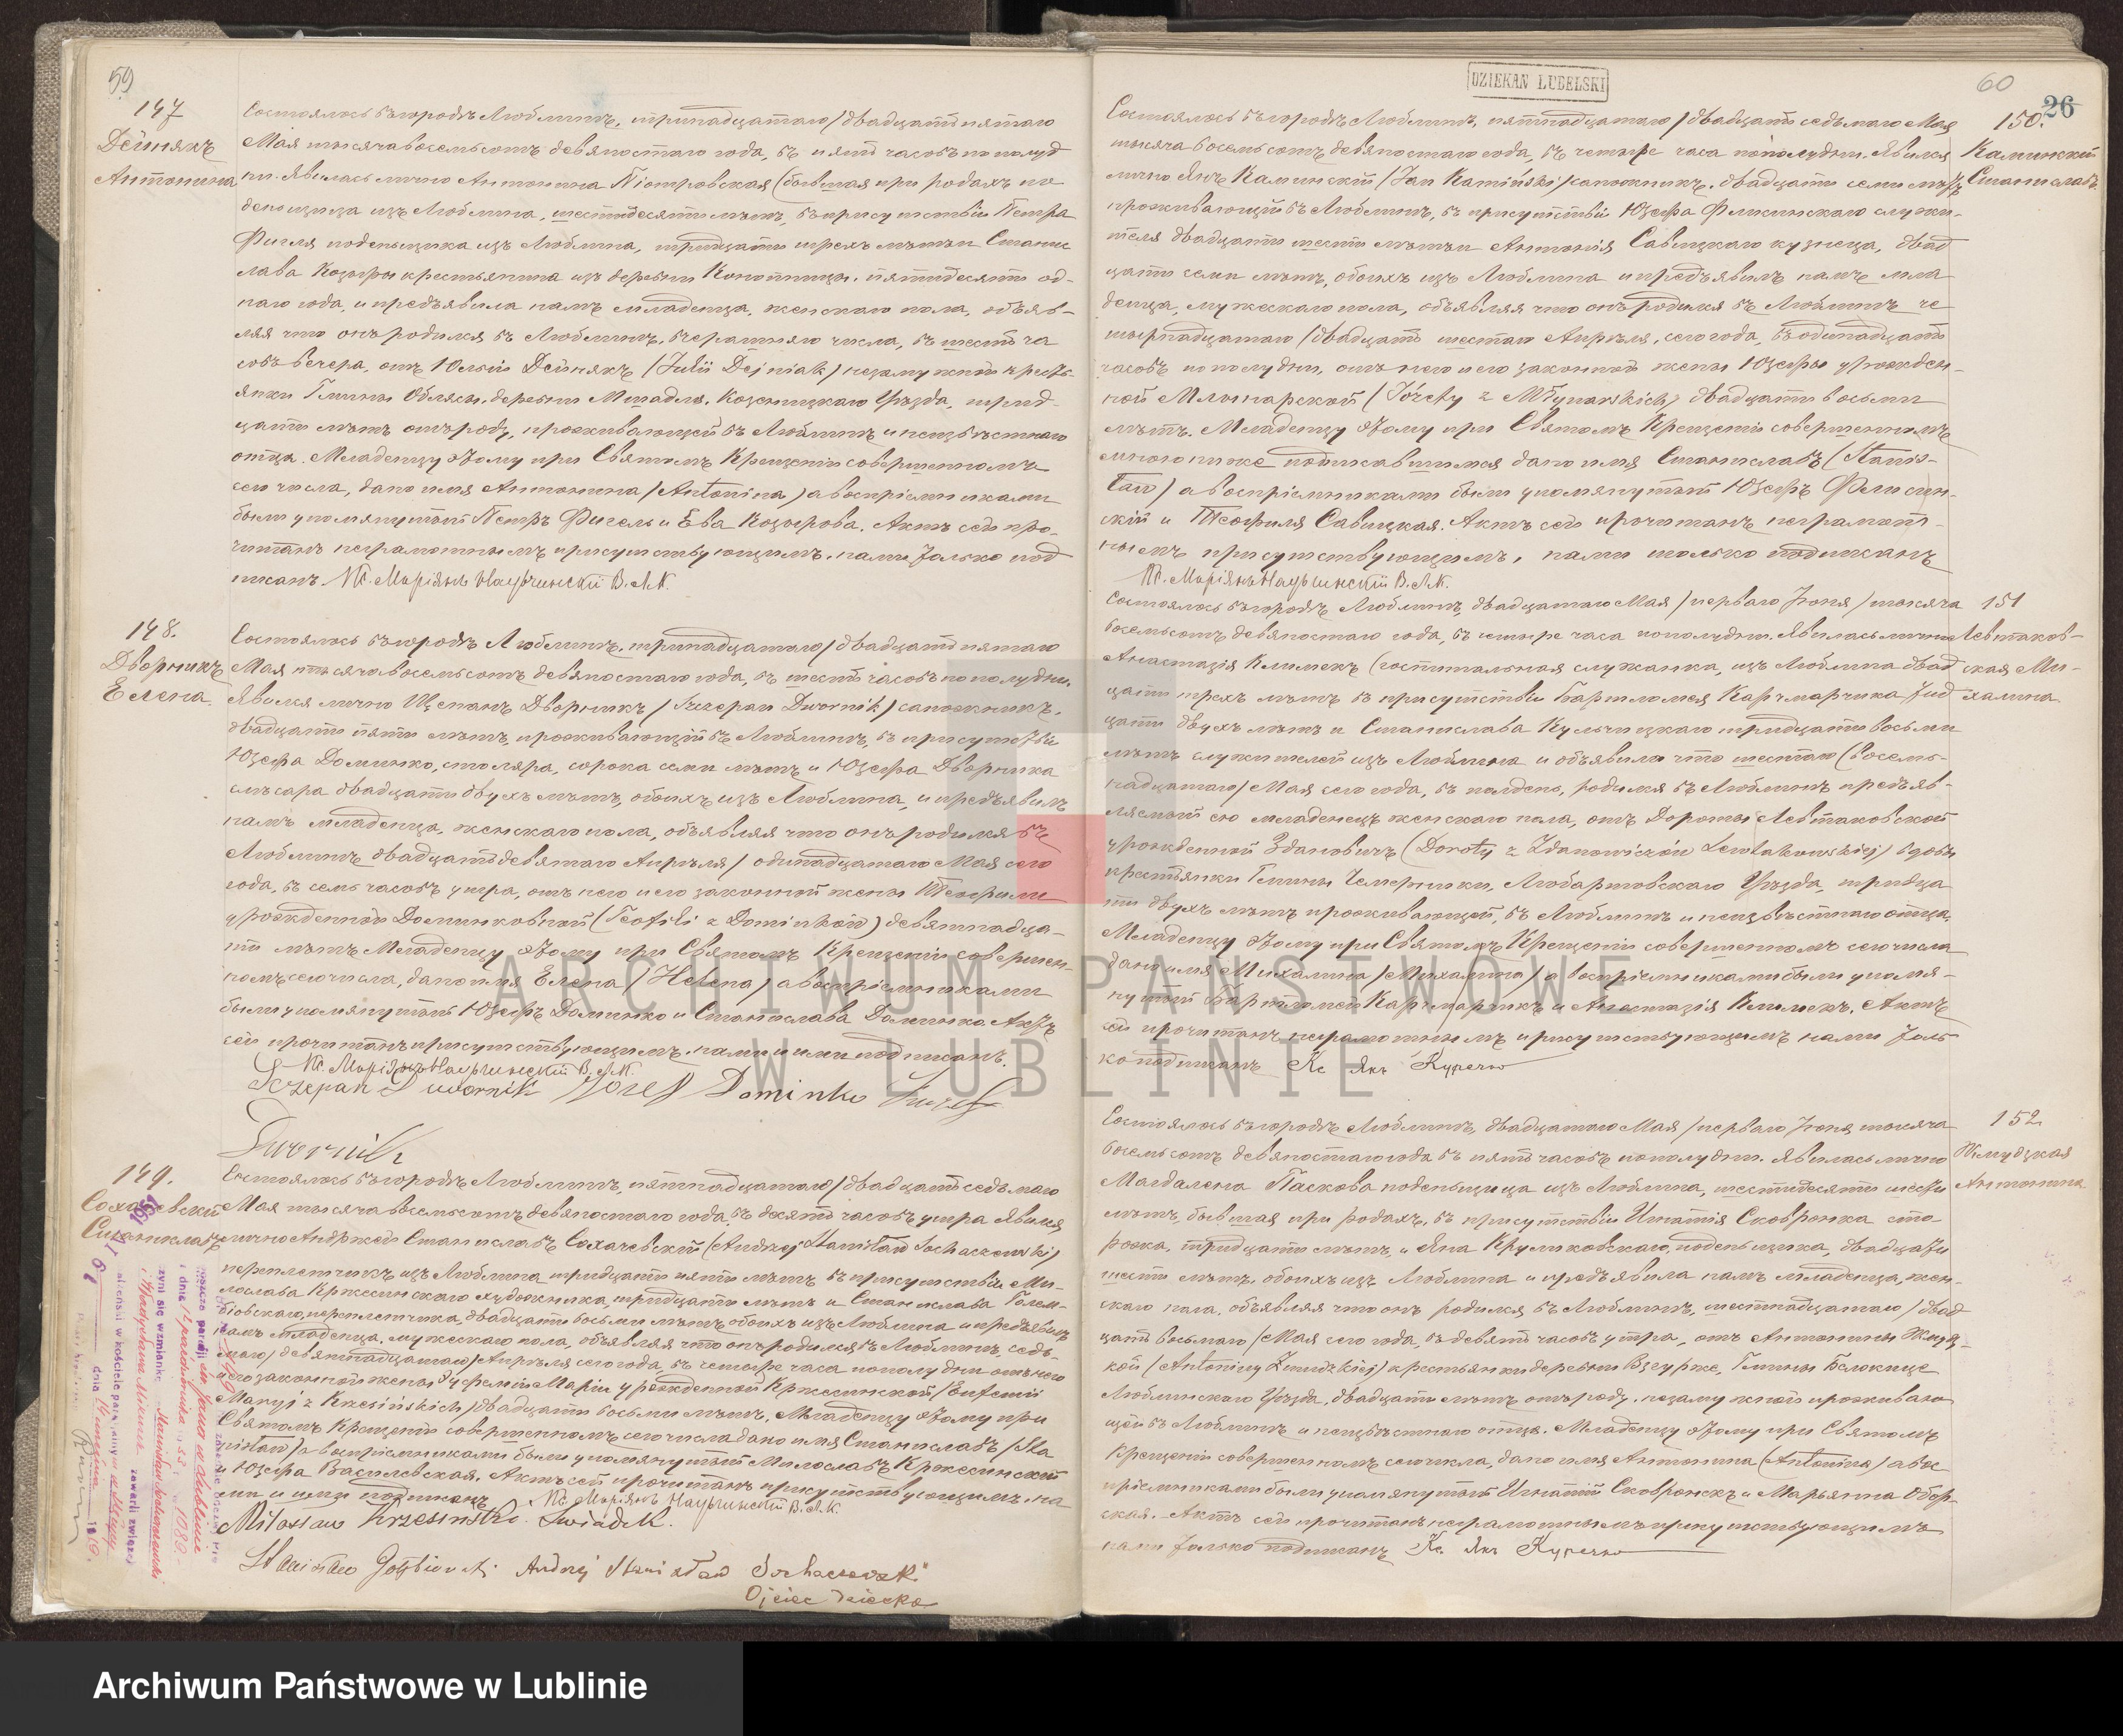 59
147
Дейнякъ
Антонина
Состоялось въ городѣ Люблинѣ, тринадцатаго /двадцать пятаго
Мая тысяча восемьсотъ девяностаго года, въ пять часовъ по полуд
ни. Явилась лично Антонина Піотровская (бывшая при родахъ по
денщица изъ Люблина, шестидесяти лѣтъ, въ присутствіи Петра
Фигля поденьщика изъ Люблина, тридцати трехъ лѣтъ и Станис
лава Козыры крестьянина изъ деревни Конопницы, пятидесяти од-
наго года, и предъявила намъ младенца, женскаго пола, объяв-
ляя что онъ родился въ Люблинѣ, вчерашняго числа, въ шесть ча
совъ вечера, отъ Юліи Дейнякъ (Julii Dejniak) незамужней кресть-
янки Гмины Облясы, деревни Мшадла, Козеницкаго Уѣзда, трид-
цати лѣтъ отъ роду, проживающей въ Люблинѣ и неизвѣстнаго
отца. Младенцу этому при Святомъ Крещеніи совершенномъ
сего числа, дано имя Антонина (Antonina) а воспріемниками
были упомянутый Петръ Фигель и Ева Козырова. Актъ сей про-
читанъ неграмотнымъ присутствующимъ, нами только под
писанъ. Кс. Маріянъ Научинскій В.Л.К.
148.
Дворникъ
Елена
Состоялось въ городѣ Люблинѣ, тринадцатаго /двадцать пятаго
Мая тысяча восемьсотъ девяностаго года, въ шесть часовъ по полудни.
Явился лично Щепанъ Дворникъ (Szczepan Dwornik) сапожникъ,
двадцати пяти лѣтъ, проживающій въ Люблинѣ, въ присутствіи
Юзефа Доминко, столяра, сорока семи лѣтъ и Юзефа Дворника
слѣсара двадцати двухъ лѣтъ, обоихъ изъ Люблина, и предъявилъ
намъ младенца, женскаго пола, объявляя что онъ родился въ
Люблинѣ двадцать девятаго Апрѣля / одинадцатаго Мая сего
года, въ семь часовъ утра, отъ него и его законной жены Теофили
урожденной Доминковной (Teofili z Dominków) девятнадца-
ти лѣтъ Младенцу этому при Святомъ Крещеніи совершен-
номъ сего числа, дано имя Елена (Helena) а воспріемниками
были упомянутый Юзефъ Доминко и Станислава Доминко Актъ
сей прочитанъ присутствующимъ, нами и ими подписанъ.
Кс. Маріянъ Научинскій В.Л.К.
Szczepan Dwornik Józef Dominko Józef
Dwornik
149.
Сохачевскій
Станиславъ
Состоялось въ городѣ Люблинѣ, пятнадцатаго /двадцать седьмаго
Мая тысяча восемьсотъ девяностаго года, въ десять часовъ утра Явился
лично Андржей Станиславъ Сохачевскій (Andrzej Stanisław Sochaczewski)
переплетчикъ изъ Люблина тридцати пяти лѣтъ въ присутствіи Ми-
лослава Кржесинскаго художника, тридцати лѣтъ и Станислава Голем-
біовскаго, переплетчика, двадцати восьми лѣтъ, обоихъ изъ Люблина и предъявилъ
намъ младенца, мужескаго пола, объявляя что онъ родился въ Люблинѣ, седь-
маго /девятнадцатаго/ Апрѣля сего года, въ четыре часа по полудни отъ него
и его законной жены Эуфеміи Маріи урожденной Кржесинской (Eufemii
Maryi z Krzesińskich) двадцати восьми лѣтъ. Младенцу этому при
Святомъ Крещеніи совершенномъ сего числа дано имя Станиславъ (Sta
nisław) а воспріемниками были упомянутый Милославъ Кржесинскій
и Юзефа Василевская. Актъ сей прочитанъ присутствующимъ, на
ми и ими подписанъ. Кс. Маріянъ Научинскій В.Л.К.
Miłosław Krzesiński. Świadek.
Stanisław Gołębiowski Andrzej Stanisław Sochaczewski
Ojciec dziecka
DZIEKAN LUBELSKI
60
26
150.
Каминскій
Станиславъ
Состоялось въ городѣ Люблинѣ, пятнадцатаго /двадцать седьмаго Мая
тысяча восемьсотъ девяностаго года, въ четыре часа по полудни. Явился
лично Янъ Каминскій (Jan Kamiński) сапожникъ, двадцати семи лѣтъ
проживающій въ Люблинѣ, въ присутствіи Юзефа Фелисинскаго служи-
теля двадцати шести лѣтъ и Антонія Савицкаго кузнеца, двад
цати семи лѣтъ, обоихъ изъ Люблина и предъявилъ намъ мла
денца, мужескаго пола, объявляя что онъ родился въ Люблинѣ че
тырнадцатаго /двадцать шестаго Апрѣля, сего года, въ одинадцать
часовъ по полудни, отъ него и его законной жены Юзефы урожден-
ной Млынарской (Józefy z Młynarskich) двадцати восьми
лѣтъ. Младенцу этому при Святомъ Крещеніи совершенномъ
мною ниже подписавшимся дано имя Станиславъ (Stanis-
ław) а воспріемниками были упомянутый Юзефъ Фелисин-
скій и Теофиля Савицкая. Актъ сей прочитанъ неграмот-
нымъ присутствующимъ, нами только подписанъ
Кс. Маріянъ Научинскій В.Л.К.
151
Левтаков-
ская Ми-
халина
Состоялось въ городѣ Люблинѣ, двадцатаго Мая /перваго Іюня/ тысяча
восемьсотъ девяностаго года, въ четыре часа по полудни. Явилась лично
Анастазія Климекъ (госпитальная служанка, изъ Люблина двад
цати трехъ лѣтъ въ присутствіи Бартломея Карчмарчика трид
цати двухъ лѣтъ и Станислава Кульчицкаго тридцати восьми
лѣтъ служителей изъ Люблина и объявила что шестаго (восем-
надцатаго) Мая сего года, въ полдень, родился въ Люблинѣ предъяв-
ляемый ею младенецъ женскаго пола, отъ Дороты Левтаковской
урожденной Здановичъ (Doroty z Zdanowiczów Lewtakowskiej) вдовы
крестьянки Гмины Чемерники, Любартовскаго Уѣзда, тридца
ти двухъ лѣтъ проживающей, въ Люблинѣ и неизвѣстнаго отца.
Младенцу этому при Святомъ Крещеніи совершенномъ сего числа
дано имя Михалина (Михалина) а воспріемниками были упомя-
нутый Бартломей Карчмарчикъ и Анастазія Климекъ. Актъ
сей прочитанъ неграмотнымъ присутствующимъ нами толь
ко подписанъ Кс Янъ Куречко
152
Жмудзкая
Антонина
Состоялось въ городѣ Люблинѣ, двадцатаго Мая /перваго Іюня тысяча
восемьсотъ девяностаго года въ пять часовъ по полудни. Явилась лично
Магдалена Паскова поденьщица изъ Люблина, шестидесяти шести
лѣтъ, бывшая при родахъ, въ присутствіи Игнатія Сковронка сто
рожа, тридцати лѣтъ, и Яна Круликовскаго, поденьщика, двадцати
шести лѣтъ, обоихъ изъ Люблина и предъявила намъ младенца, жен-
скаго пола, объявляя что онъ родился въ Люблинѣ, шестнадцатаго /двад-
цать восьмаго /Мая сего года, въ девять часовъ утра, отъ Антонины Жмудз-
кой (Antoniny Żmudzkiej) крестьянки деревни Гмины Белжице
Люблинскаго Уѣзда, двадцати лѣтъ отъ роду, незамужной проживаю
щей въ Люблинѣ и неизвѣстнаго отца. Младенцу этому при Святомъ
Крещеніи совершенномъ сего числа, дано имя Антонина (Antonina) а вос
пріемниками были упомянутый Игнатій Сковронекъ и Марьянна Обор-
ская. Актъ сей прочитанъ неграмотнымъ присутствующимъ
нами только подписанъ Кс. Янъ Куречко
ARCHIWUM PAŃSTWOWE
W LUBLINIE
Archiwum Państwowe w Lublinie